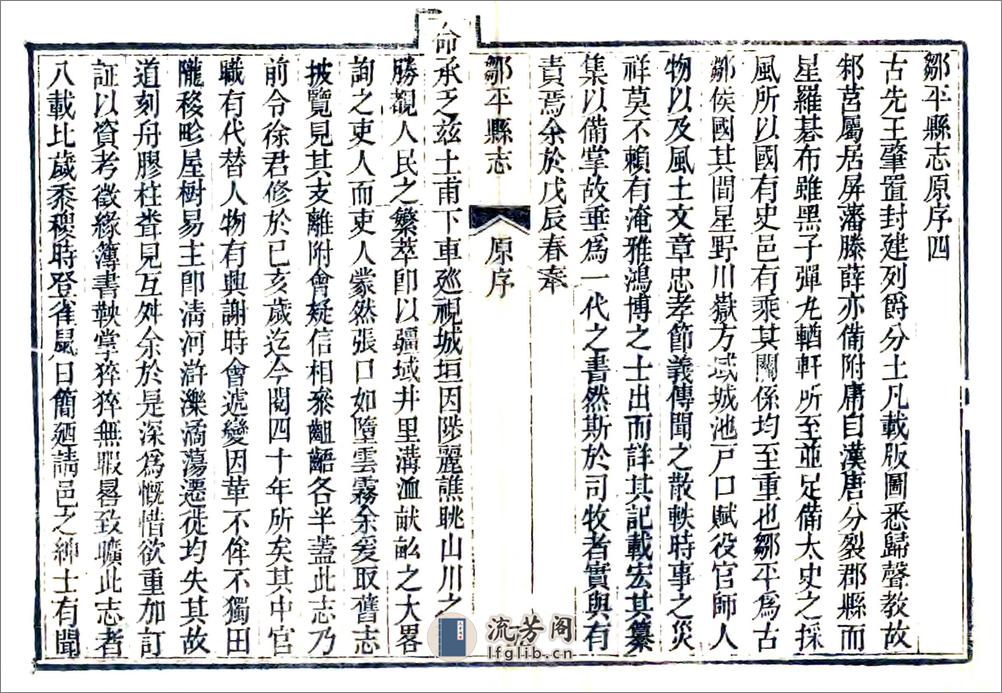 鄒平縣志原序四
古先王肇置封建列爵分土凡載版圖悉歸聲教故
邾莒屬居屏藩滕薛亦備附庸自漢唐分裂郡縣而
星羅碁布雖黑子彈丸輶軒所至並足備太史之採
風所以國有史邑有乘其關係均至重也鄒平為古
鄒侯國其間星野川嶽方域城池戸口賦役官師人
物以及風土文章忠孝節義傳聞之散軼時事之災
祥莫不賴有淹雅鴻博之士出而詳其記載宏其纂
集以備掌故垂為一代之書然斯於司牧者實與有
責焉余於戊辰春奉
鄒平縣志
原序
命
承乏兹土甫下車廵視城垣因陟麗譙眺山川之
勝覩人民之繁萃卽以疆域井里溝洫畎畝之大畧
詢之吏人而吏人蒙然張口如墮雲霧余爰取舊志
披覽見其支離附會疑信相叅齟齬各半蓋此志乃
前令徐君修於己亥歲迄今閱四十年所矣其中官
職有代替人物有興謝時會遞變因革不侔不獨田
隴移畛屋樹易主卽清河滸濼潏蕩遷徙均失其故
道刻舟膠柱聋見互舛余於是深為慨惜欲重加訂
証以資考徵緣簿書鞅掌猝猝無暇畧致曠此志者
八載比歲黍稷時登雀鼠日簡廼請邑之紳士有聞
流芳阁
lfglib.cn